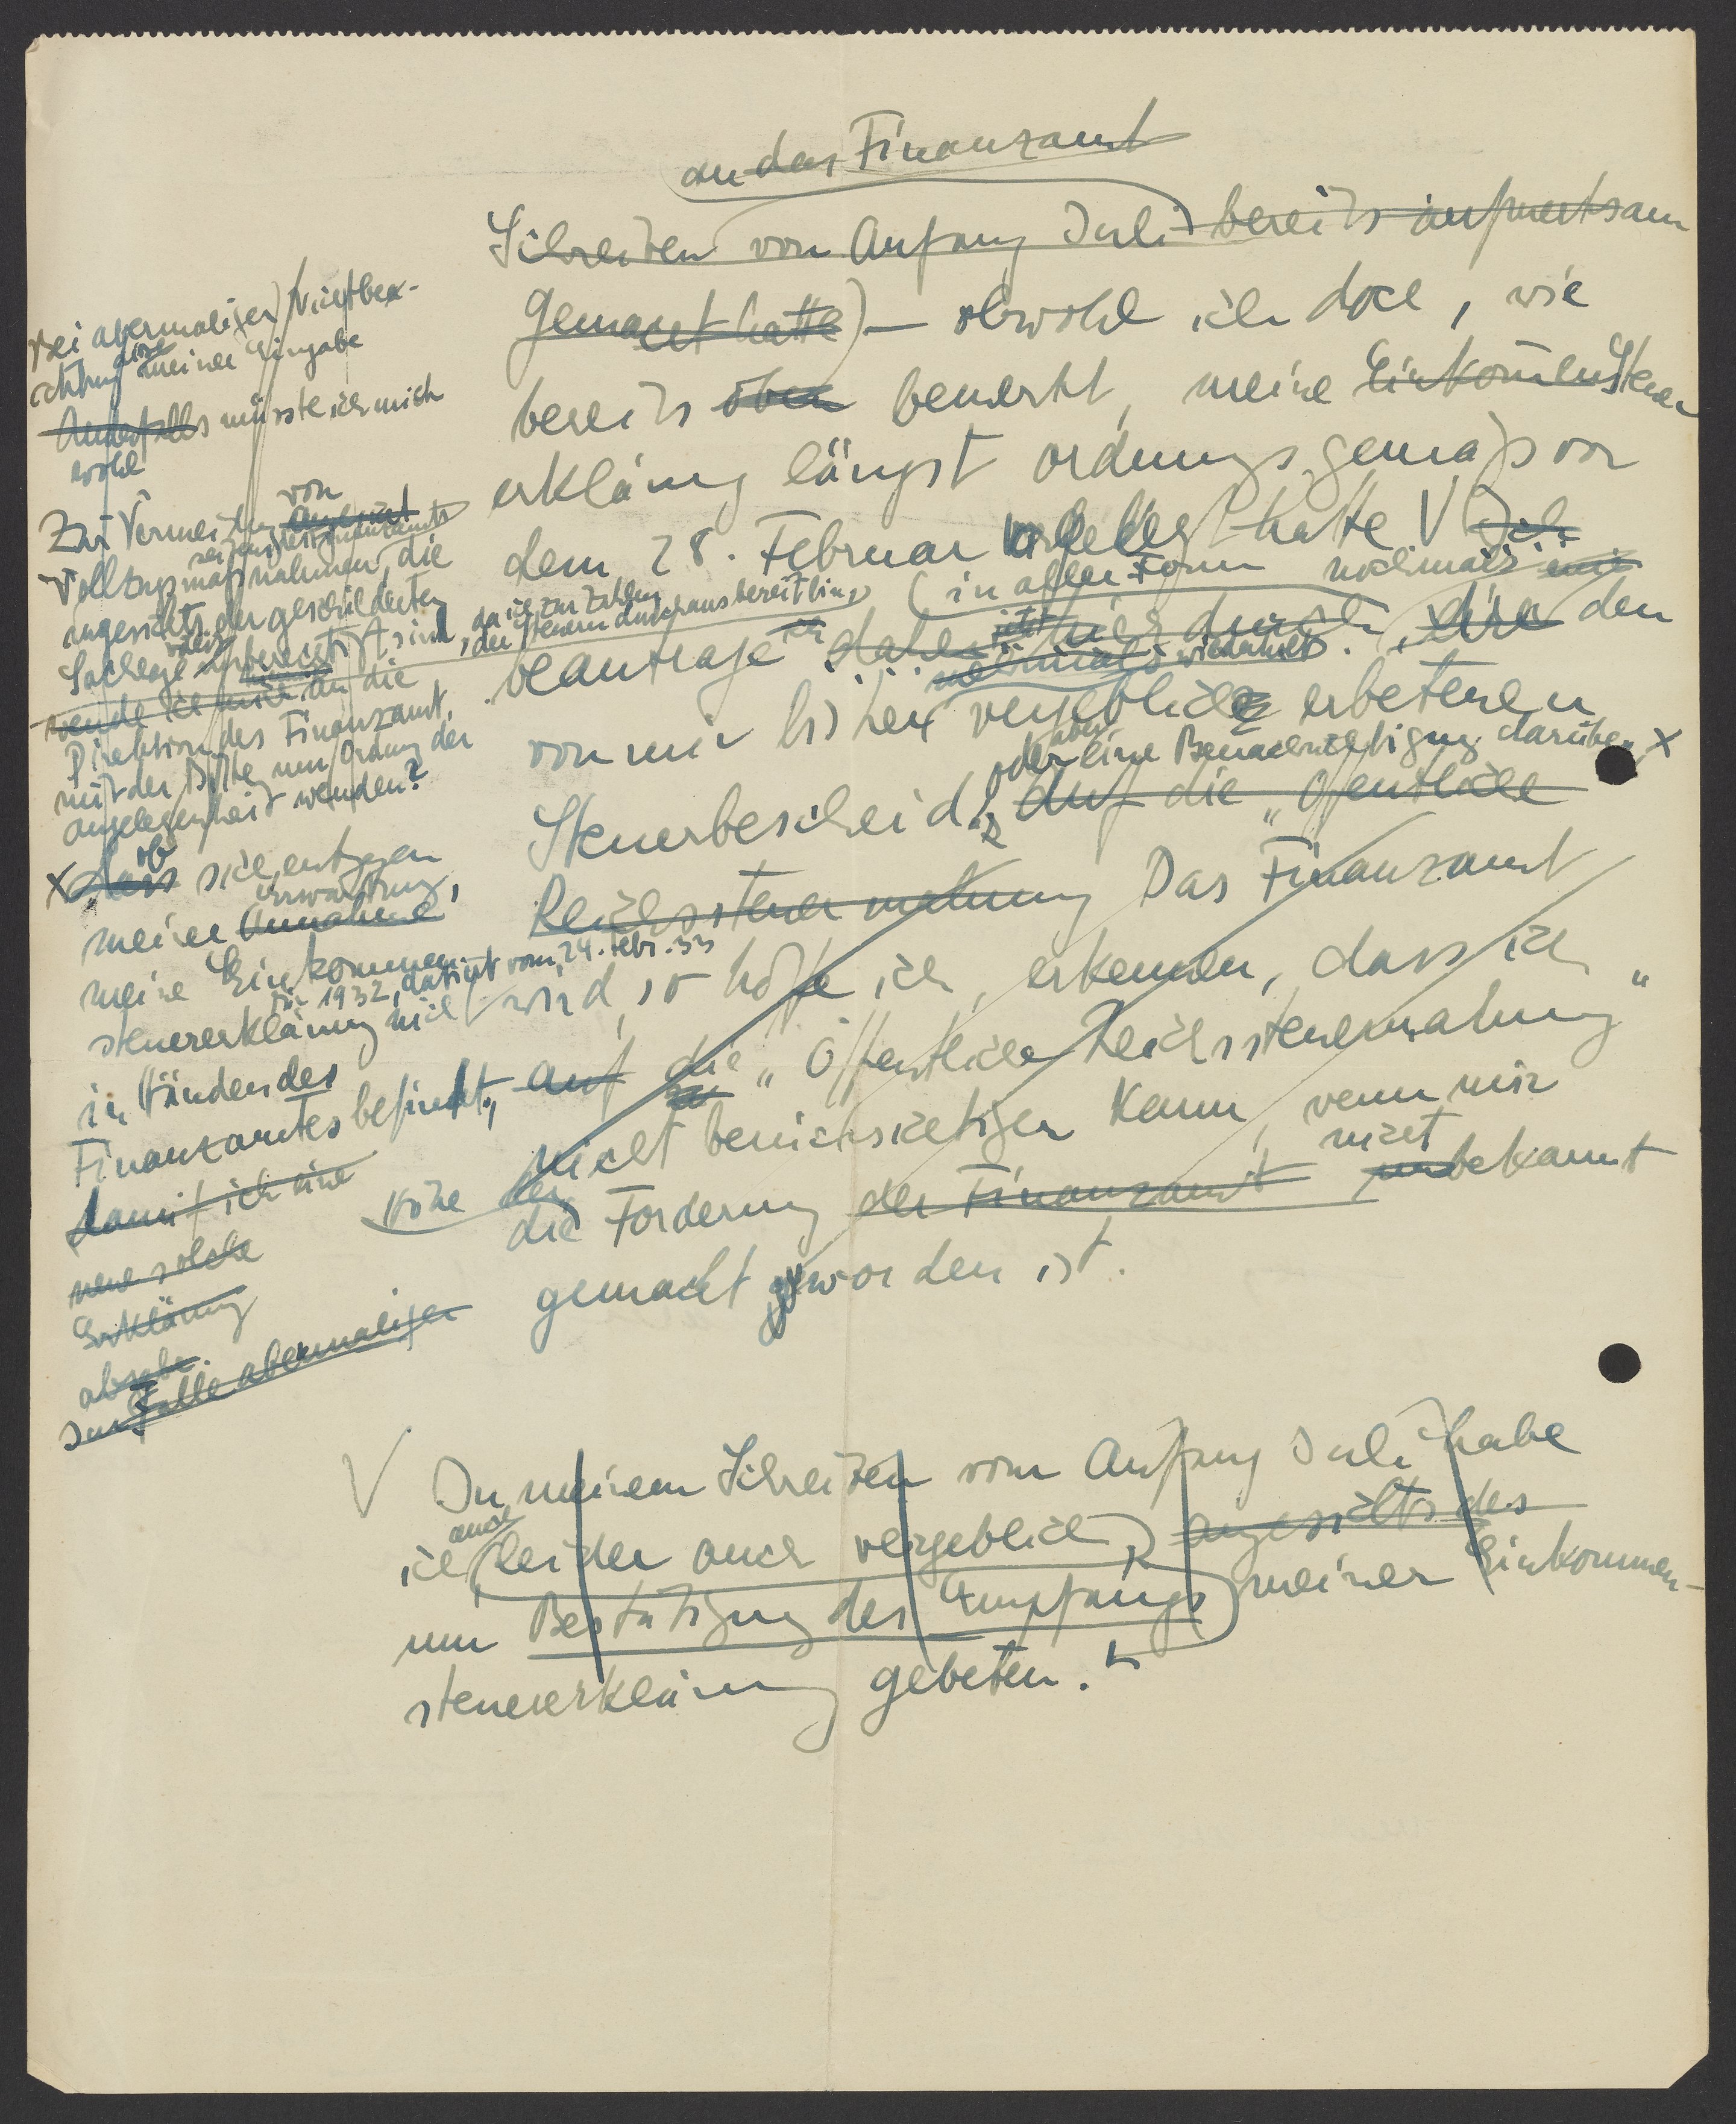 an das Finanzamt
Schreiben vom Anfang Juli bereits aufmerksam
gemacht hatte) – obwohl ich doch, wie
bereits oben bemerkt, meine Einkom̄ensteuer
erklärung längst ordnungsgemäß vor
dem 28. Februar hatte V Ich
(in aller Form nochmals
beantrage ich daher jetzt hierdurch, den
nochmals wiederholt.
von mir bisher vergeblich erbetenen
oder aber eine Benachrichtigung darüber, x
Steuerbescheid. Auf die „Öffentliche
Reichssteuermahnung Das Finanzamt
wird, so hoffe ich, erkennen, dass ich
auf die „Öffentliche Reichssteuermahnung“
nicht berücksichtigen kann, wenn mir
Höhe der
die Forderung der Finanzamt nicht unbekannt
gemacht geworden ist.
Bei abermaliger Nichtbea-
chtung dieser meiner Eingabe
Andernfalls müsste ich mich
wohl
Zur Vermeidung von
seitens des Finanzamts
Vollzugsmaßnahmen, die
angesichts der geschilderten
Sachlage unberechtigt sind, da ich zur Zahlung
der Steuern durchaus bereit bin,
wende ich mich an die
Direktion des Finanzamt.
mit der Bitte um Ordnung der
Angelegenheit wenden?
x dass ob sich entgegen
meiner Annahme Erwartung,
meine Einkommen-
für 1932, datiert vom 24. Febr. 33
steuererklärung nicht
in Händen des
Finanzamtes befindet,
damit ich eine
neue solche
Erklärung
abgebe.
Im Falle abermaliger
V In meinem Schreiben vom Anfang Juli habe
ich auch (leider auch vergeblich,) angesichts des
um Bestätigung des Empfangs meiner Einkommen-
steuererklärung gebeten.